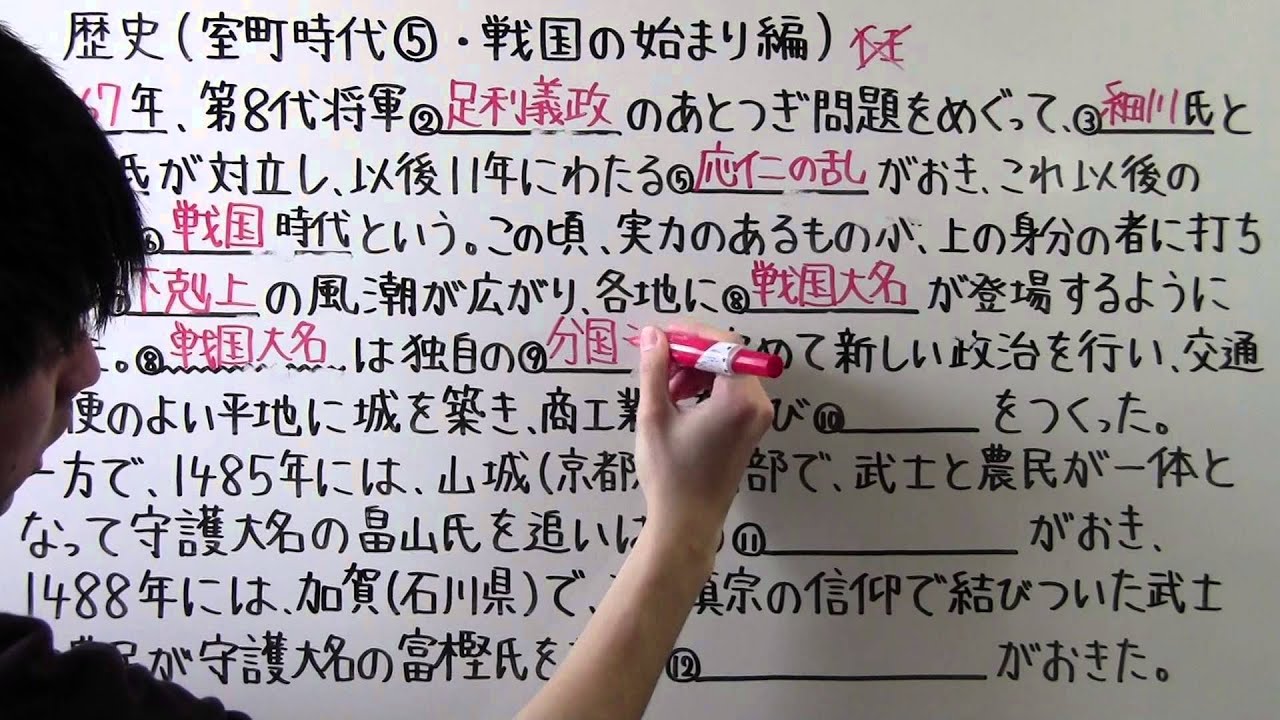 歴史(室町時代⑤・戦国の始まり編)
67年、第8代将軍②足利義政のあとつぎ問題をめぐって、③細川氏と
氏が対立し、以後11年にわたる⑤応仁の乱がおき、これ以後の
⑥戦国時代という。この頃、実力のあるものが、上の身分の者に打ち
下剋上の風潮が広がり、各地に⑧戦国大名が登場するように
。⑧戦国大名は独自の⑨分国 めて新しい政治を行い、交通
便のよい平地に城を築き、商工業 び⑩ をつくった。
一方で、1485年には、山城(京都 部で、武士と農民が一体と
なって守護大名の畠山氏を追い ⑪ がおき、
1488年には、加賀(石川県)で、 真宗の信仰で結びついた武士
農民が守護大名の富樫氏を ⑫ がおきた。